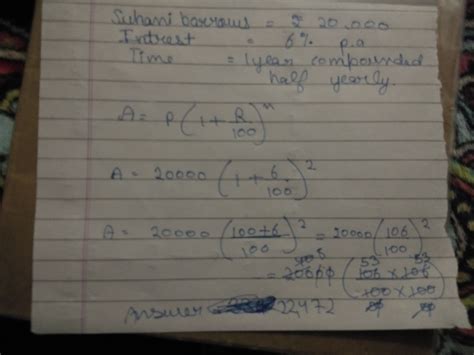 Suhani borrows = ₹ 20.000
Intrest = 6% p.a
Time = 1 year compounded
half yearly.
A = P(1 + R/100)^n
A = 20000 (1 + 6/100)^2
A = 20000 (100+6/100)^2 = 20000 (106/100)^2
= 20000 (106 × 106/100 × 100) 53 53
Answer 22472